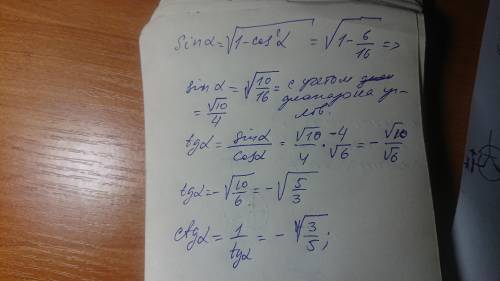 sinα = √(1-cos²α) = √(1-6/16) =>
sinα = √(10/16) = с учетом
= √10/4 диапазона уг-
лов.
tgα = sinα/cosα = √10/4 · -4/√6 = - √10/√6
tgα = -√(10/6) = -√(5/3)
ctgα = 1/tgα = -√(3/5);